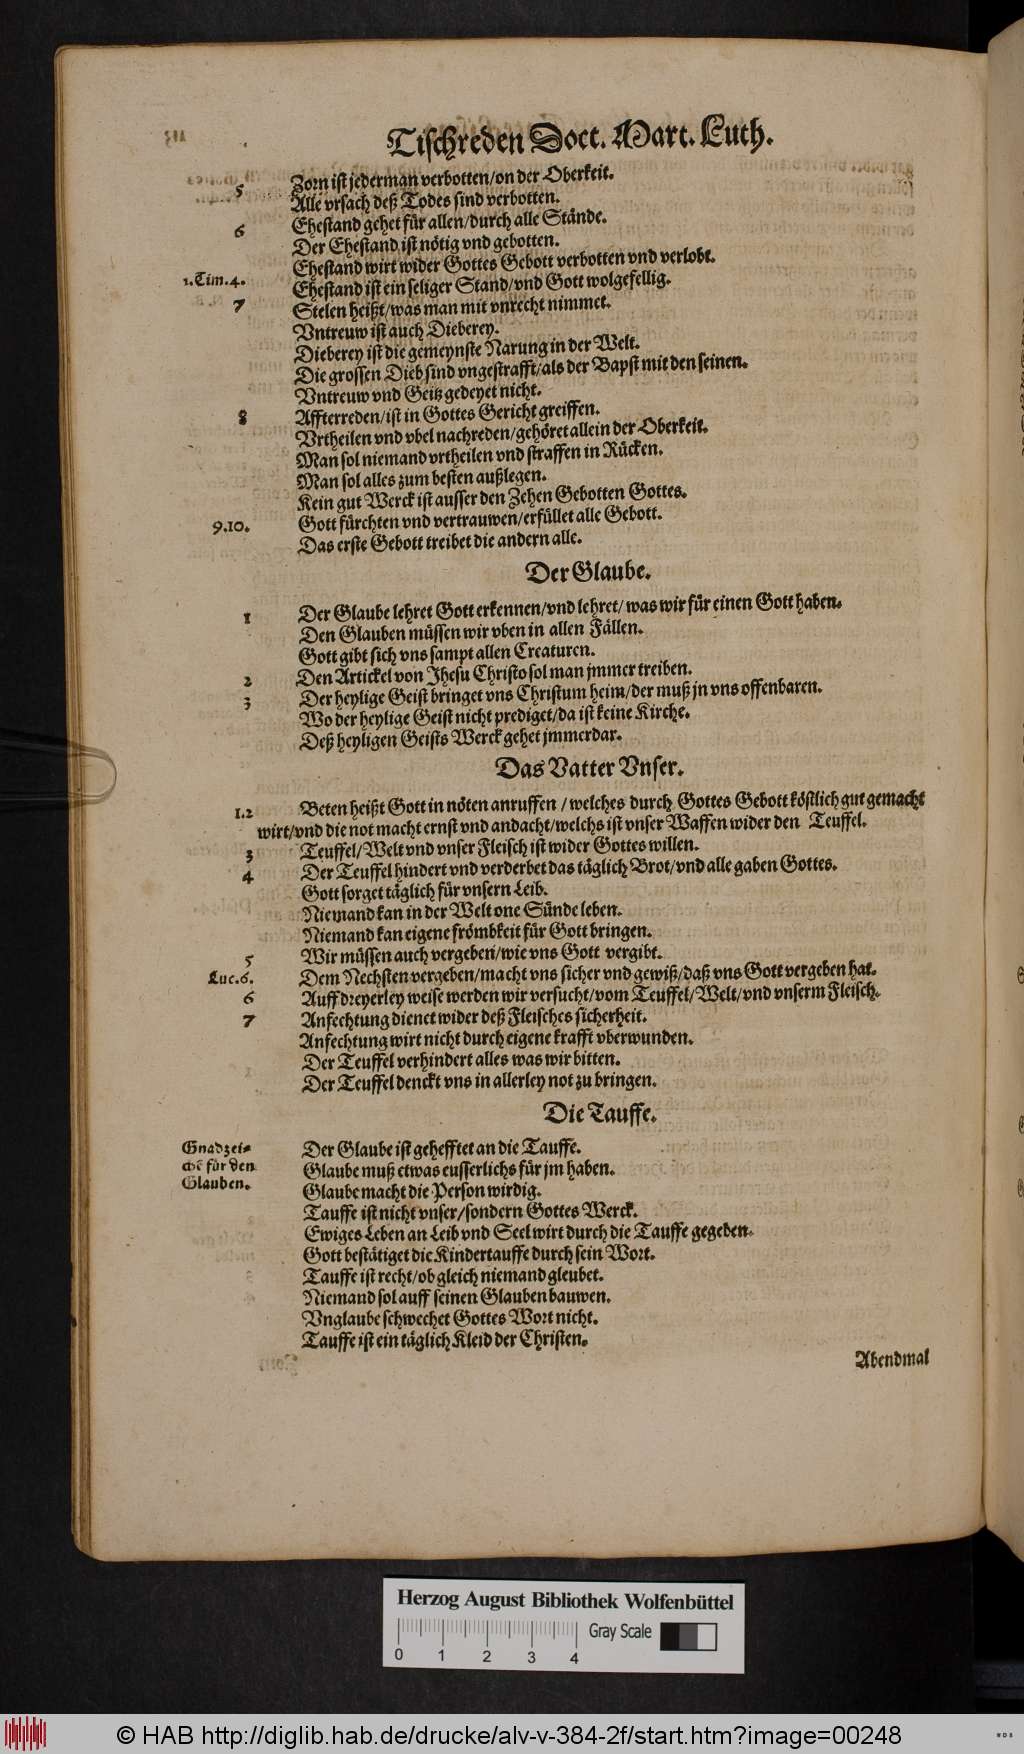 Tischreden Doct. Mart. Luth.
5 Zorn ist jederman verbotten/on der Oberkeit.
Alle vrsach deß Todes sind verbotten.
6 Ehestand gehet für allen/durch alle Stände.
Der Ehestand ist nötig vnd gebotten.
Ehestand wirt wider Gottes Gebott verbotten vnd verlobt.
1.Tim.4. Ehestand ist ein seliger Stand/vnd Gott wolgefellig.
7 Stelen heißt/was man mit vnrecht nimmet.
Vntreuw ist auch Dieberey.
Dieberey ist die gemeynste Narung in der Welt.
Die grossen Dieb sind vngestrafft/als der Bapst mit den seinen.
Vntreuw vnd Geitz gedeyet nicht.
8 Affterreden/ist in Gottes Gericht greiffen.
Vrtheilen vnd vbel nachreden/gehöret allein der Oberkeit.
Man sol niemand vrtheilen vnd straffen in Rücken.
Man sol alles zum besten außlegen.
Kein gut Werck ist ausser den Zehen Gebotten Gottes.
9.10. Gott fürchten vnd vertrauwen/erfüllet alle Gebott.
Das erste Gebott treibet die andern alle.
Der Glaube.
1 Der Glaube lehret Gott erkennen/vnd lehret/was wir für einen Gott haben.
Den Glauben müssen wir vben in allen Fällen.
Gott gibt sich vns sampt allen Creaturen.
2 Den Artickel von Jhesu Christo sol man jmmer treiben.
3 Der heylige Geist bringet vns Christum heim/der muß jn vns offenbaren.
Wo der heylige Geist nicht prediget/da ist keine Kirche.
Deß heyligen Geists Werck gehet jmmerdar.
Das Vatter Vnser.
1.2 Beten heißt Gott in nöten anruffen/welches durch Gottes Gebott köstlich gut gemacht
wirt/vnd die not macht ernst vnd andacht/welchs ist vnser Waffen wider den Teuffel.
3 Teuffel/Welt vnd vnser Fleisch ist wider Gottes willen.
4 Der Teuffel hindert vnd verderbet das täglich Brot/vnd alle gaben Gottes.
Gott sorget täglich für vnsern Leib.
Niemand kan in der Welt one Sünde leben.
Niemand kan eigene frömbkeit für Gott bringen.
5 Wir müssen auch vergeben/wie vns Gott vergibt.
Luc.6. Dem Nechsten vergeben/macht vns sicher vnd gewiß/daß vns Gott vergeben hat.
6 Auff dreyerley weise werden wir versucht/vom Teuffel/Welt/vnd vnserm Fleisch.
7 Anfechtung dienet wider deß Fleisches sicherheit.
Anfechtung wirt nicht durch eigene krafft vberwunden.
Der Teuffel verhindert alles was wir bitten.
Der Teuffel denckt vns in allerley not zu bringen.
Die Tauffe.
Gnadzei-
chẽ für den
Glauben.
Der Glaube ist gehefftet an die Tauffe.
Glaube muß etwas eusserlichs für jm haben.
Glaube macht die Person wirdig.
Tauffe ist nicht vnser/sondern Gottes Werck.
Ewiges Leben an Leib vnd Seel wirt durch die Tauffe gegeben.
Gott bestätiget die Kindertauffe durch sein Wort.
Tauffe ist recht/ob gleich niemand gleubet.
Niemand sol auff seinen Glauben bauwen.
Vnglaube schwechet Gottes Wort nicht.
Tauffe ist ein täglich Kleid der Christen.
Abendmal
Herzog August Bibliothek Wolfenbüttel
Gray Scale
0 1 2 3 4
© HAB http://diglib.hab.de/drucke/alv-v-384-2f/start.htm?image=00248